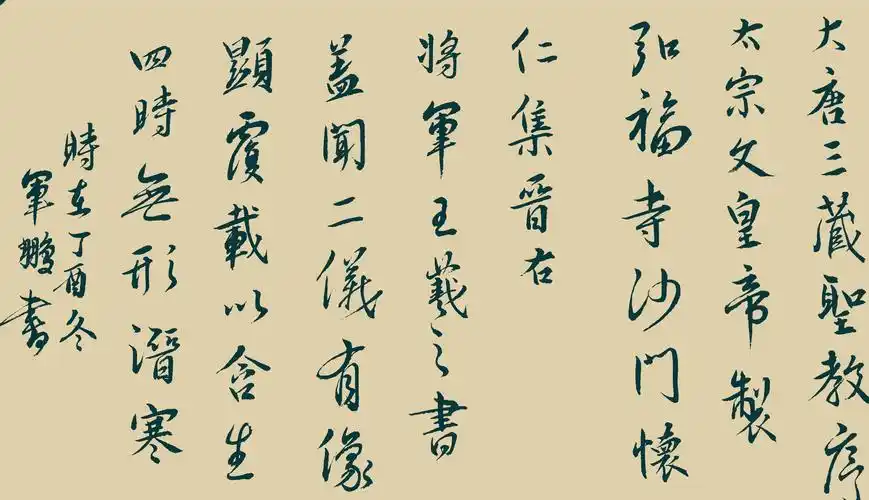 大唐三藏聖教序
太宗文皇帝製
弘福寺沙門懷
仁集晉右
將軍王羲之書
蓋聞二儀有像
顯覆載以含生
四時無形潛寒
時在丁酉冬
軍鵬書